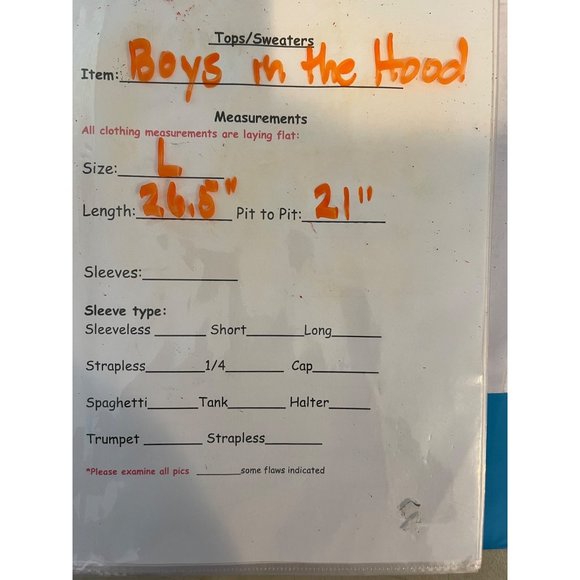 Tops/Sweaters
Item: Boys in the Hood
Measurements
All clothing measurements are laying flat:
Size: L
Length: 26.5" Pit to Pit: 21"
Sleeves:
Sleeve type:
Sleeveless ______ Short______Long______
Strapless______1/4______ Cap______
Spaghetti______Tank______ Halter______
Trumpet ______ Strapless______
*Please examine all pics ______some flaws indicated